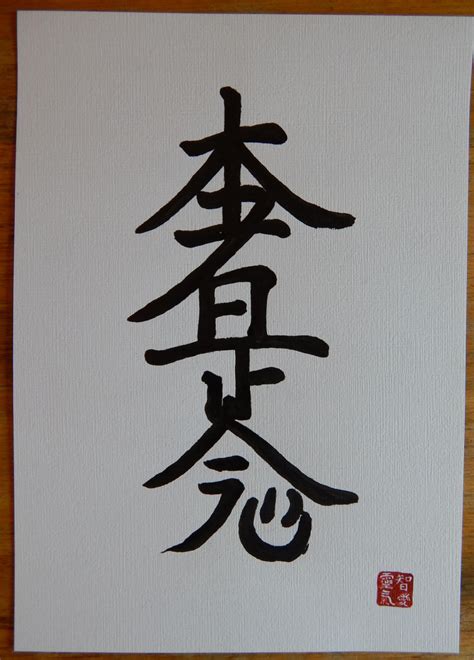 本者是正念
智愛
靈氣